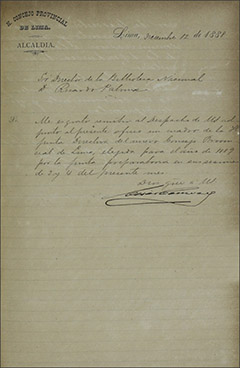 H. CONCEJO PROVINCIAL
DE LIMA.
ALCALDIA.
Lima, Diciembre 12 de 1888
Sr Director de la Biblioteca Nacional
D. Ricardo Palma
Me es grato remitir al Despacho de Ud. ad-
junto al presente oficio un cuadro de la
Junta Directiva del nuevo Concejo Provin
cial de Lima, elegida para el año de 1889
por la junta preparatoria en sus sesiones
de 3 y 4 del presente mes.
Dios gue a Ud.